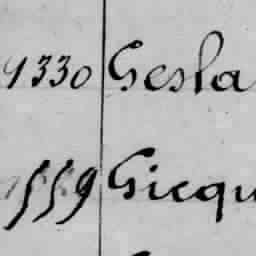 1330 Gesla
1559 Gicqu